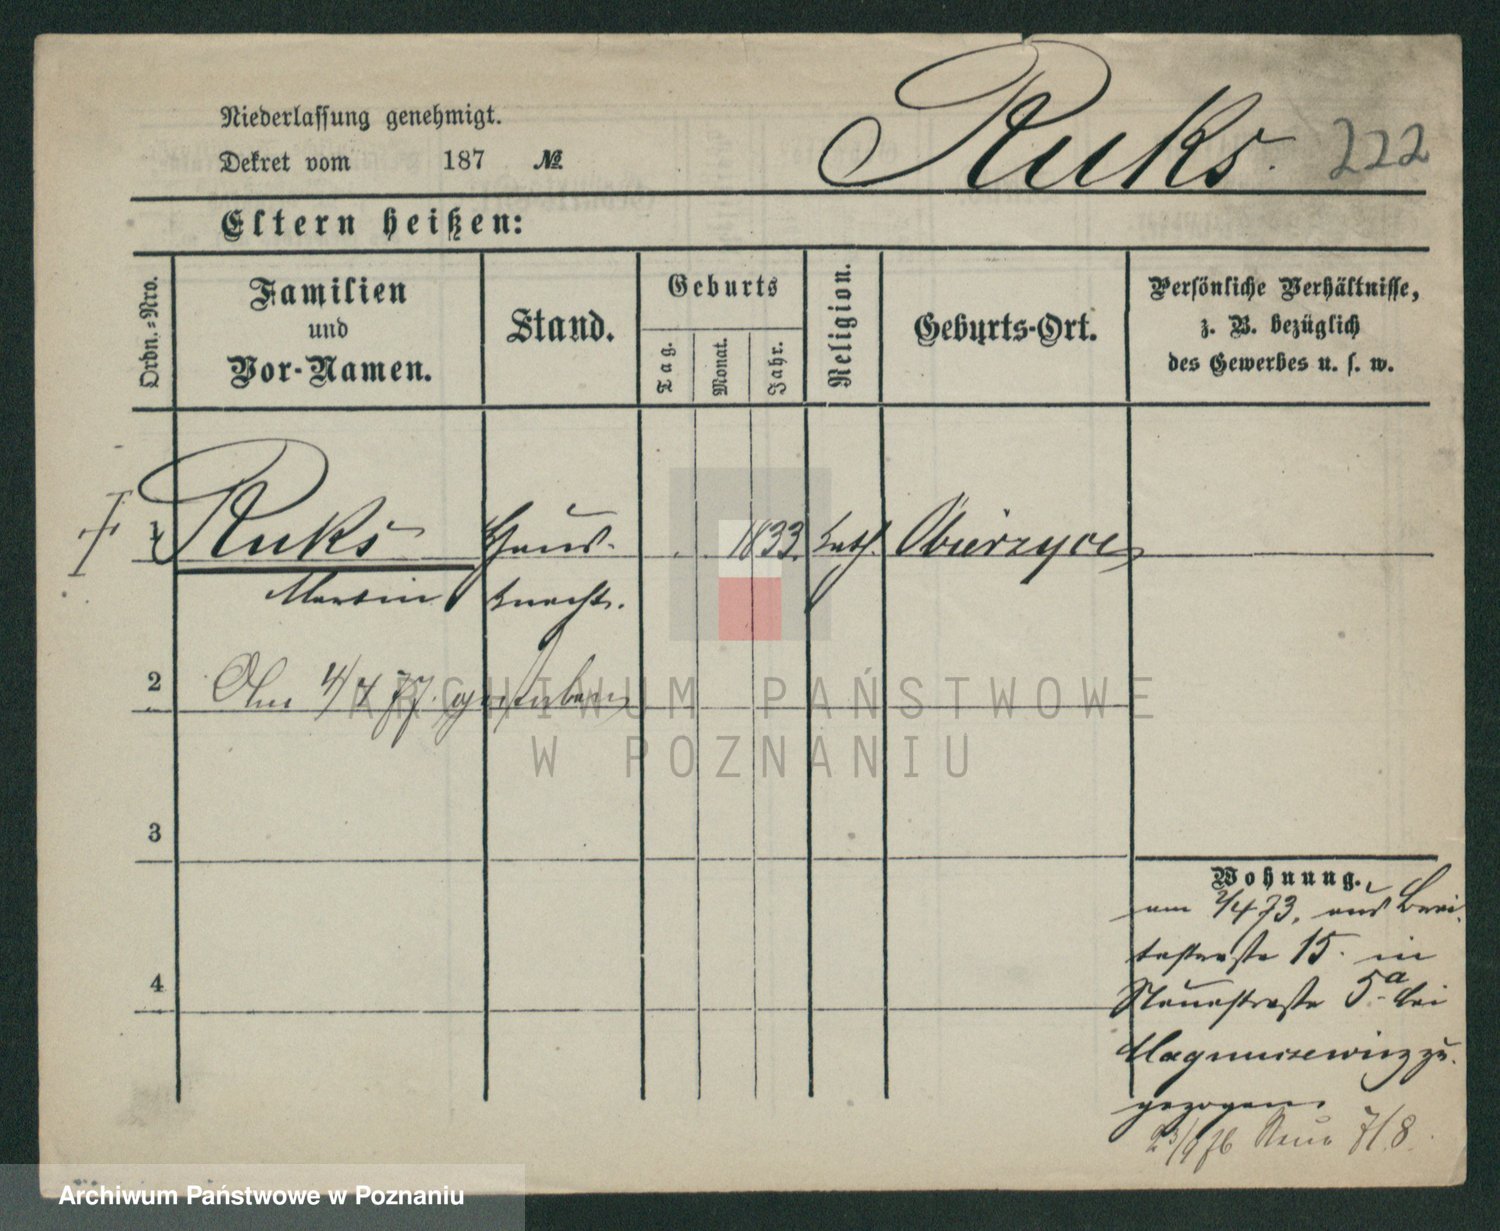 Niederlassung genehmigt.
Dekret vom 187 №
Ruks. 222
Eltern heißen:
Ordn.=Nro.
Familien
und
Vor-Namen.
Stand.
Geburts
Tag.
Monat.
Jahr.
Religion.
Geburts-Ort.
Persönliche Verhältnisse,
z. B. bezüglich
des Gewerbes u. s. w.
1 Ruks Haus- 1833 kath. Obierzyce
Martin knecht.
2 Am 4/4 77. gestorben
3
4
Wohnung.
am 2/4 73. aus
15. in
Neuestraße 5a bei
zu-
gezogen.
Neue 7/8.
ARCHIWUM PAŃSTWOWE
W POZNANIU
Archiwum Państwowe w Poznaniu